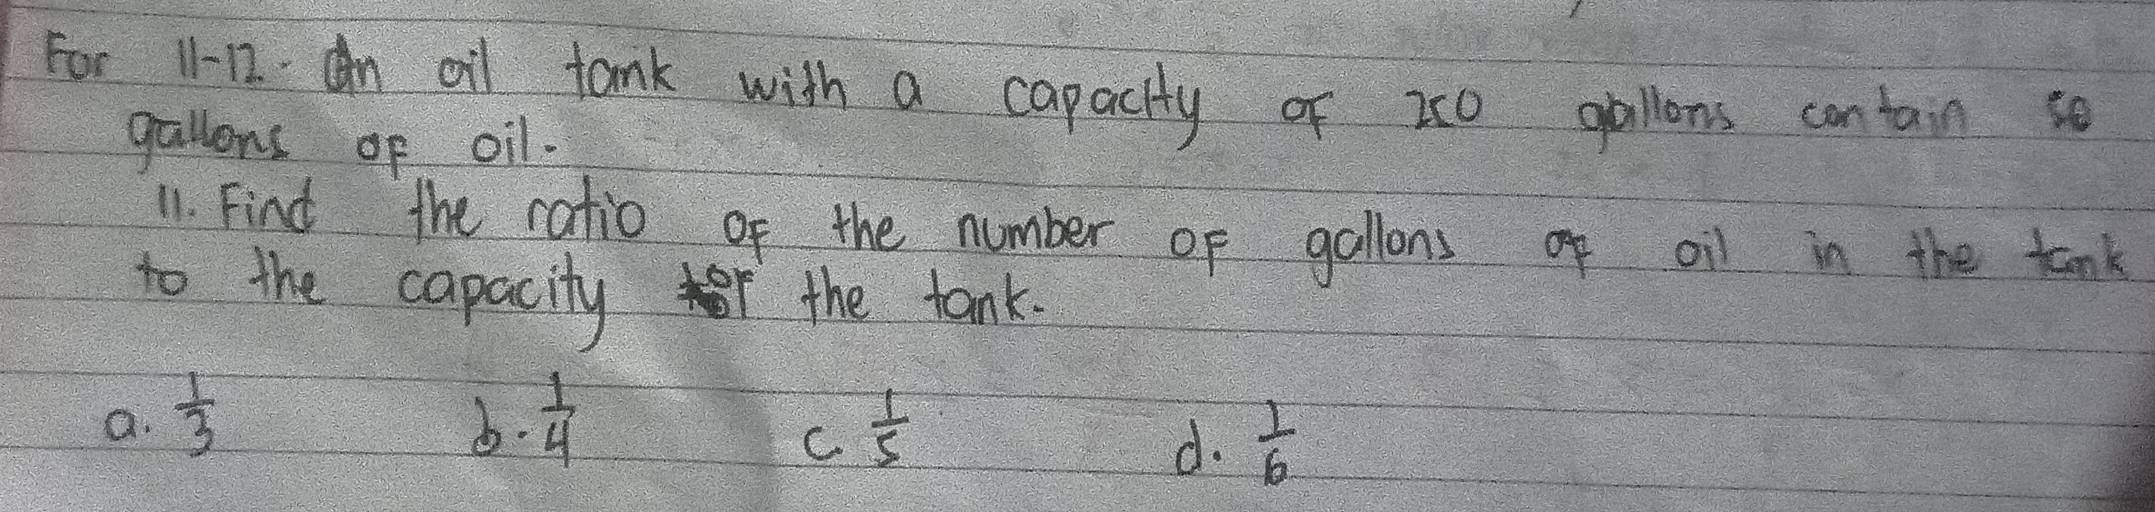 For 11-12. An oil tank with a capacity of 250 gallons contain 50
gallons of oil.
11. Find the ratio of the number of gallons of oil in the tank
to the capacity of the tank.
a. 1/3 b. 1/4 c. 1/5 d. 1/6